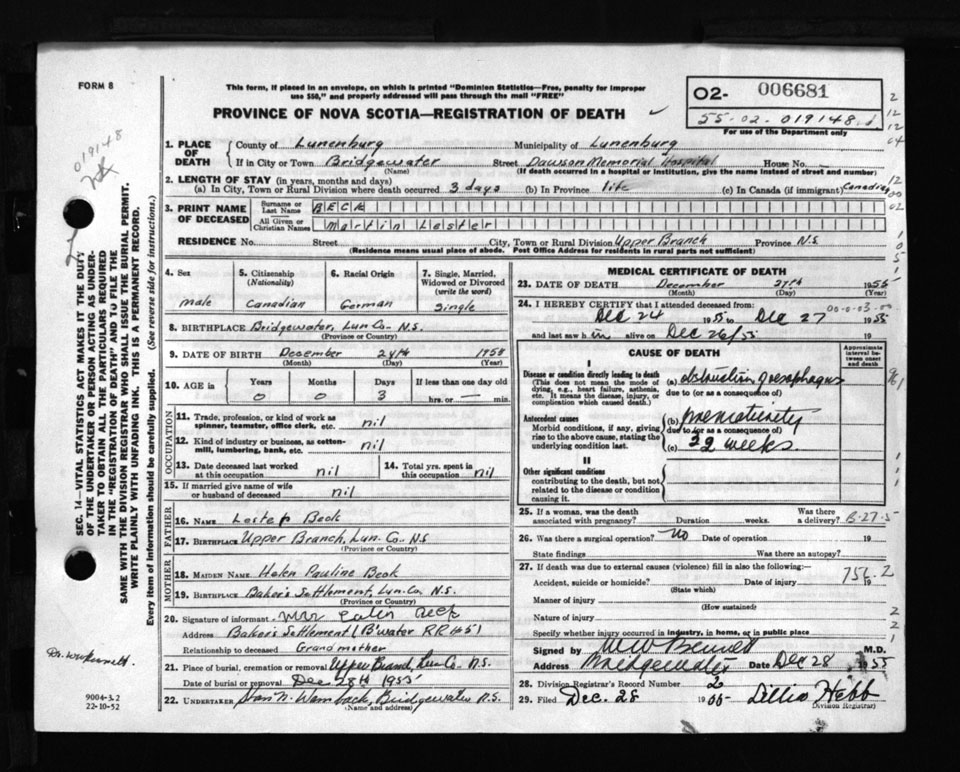 FORM 8
This form, if placed in an envelope, on which is printed "Dominion Statistics—Free, penalty for improper
use $50," and properly addressed will pass through the mail "FREE"
PROVINCE OF NOVA SCOTIA—REGISTRATION OF DEATH
02- 006681
55-02-019148
For use of the Department only
019148
SEC. 14—VITAL STATISTICS ACT MAKES IT THE DUTY
OF THE UNDERTAKER OR PERSON ACTING AS UNDER-
TAKER TO OBTAIN ALL THE PARTICULARS REQUIRED
IN THE "REGISTRATION OF DEATH" AND TO FILE THE
SAME WITH THE DIVISION REGISTRAR WHO SHALL ISSUE THE BURIAL PERMIT.
WRITE PLAINLY WITH UNFADING INK. THIS IS A PERMANENT RECORD.
Every item of information should be carefully supplied. (See reverse side for instructions.)
1. PLACE OF DEATH County of Lunenburg Municipality of Lunenburg
If in City or Town Bridgewater Street Dawson Memorial Hospital House No.
(Name) (If death occurred in a hospital or institution, give the name instead of street and number)
2. LENGTH OF STAY (in years, months and days)
(a) In City, Town or Rural Division where death occurred 3 days (b) In Province life (c) In Canada (if immigrant) Canadian
3. PRINT NAME OF DECEASED Surname or Last Name BECK
All Given or Christian Names Martin Lester
RESIDENCE No. Street City, Town or Rural Division Upper Branch Province N.S.
(Residence means usual place of abode. Post Office Address for residents in rural parts not sufficient)
4. Sex 5. Citizenship (Nationality) 6. Racial Origin 7. Single, Married, Widowed or Divorced (write the word)
male Canadian German Single
8. BIRTHPLACE Bridgewater, Lun. Co. N.S.
(Province or Country)
9. DATE OF BIRTH December 24th
(Month) (Day) (Year)
10. AGE in Years Months Days If less than one day old
0 0 3 hrs. or — min.
OCCUPATION
11. Trade, profession, or kind of work as
spinner, teamster, office clerk, etc. nil
12. Kind of industry or business, as cotton-
mill, lumbering, bank, etc. nil
13. Date deceased last worked at this occupation nil 14. Total yrs. spent in this occupation nil
15. If married give name of wife
or husband of deceased nil
FATHER
16. NAME Lester Beck
17. BIRTHPLACE Upper Branch, Lun. Co. N.S
(Province or Country)
MOTHER
18. MAIDEN NAME Helen Pauline Beck
19. BIRTHPLACE Baker's Settlement, Lun. Co, N.S.
(Province or Country)
20. Signature of informant Mrs Beck
Address Baker's Settlement (B'water RR#5)
Relationship to deceased Grandmother
21. Place of burial, cremation or removal Upper Branch, Lun Co. N.S.
Date of burial or removal Dec 28th 1955
22. UNDERTAKER N. Wambach, Bridgewater N.S.
(Name and address)
9004-3.2
22-10-52
MEDICAL CERTIFICATE OF DEATH
23. DATE OF DEATH December 27th 1955
(Month) (Day) (Year)
24. I HEREBY CERTIFY that I attended deceased from:
Dec 24 1955 to Dec 27 1955
and last saw him alive on Dec 26/55
CAUSE OF DEATH Approximate interval between onset and death
I
Disease or condition directly leading to death (a) obstruction oesophagus
(This does not mean the mode of dying, e.g., heart failure, asthenia, etc. It means the disease, injury, or complication which caused death.) due to (or as a consequence of)
Antecedent causes (b) Prematurity
Morbid conditions, if any, giving rise to the above cause, stating the underlying condition last. due to (or as a consequence of)
(c) 32 weeks
II
Other significant conditions
contributing to the death, but not
related to the disease or condition
causing it.
25. If a woman, was the death associated with pregnancy? Duration weeks. Was there a delivery?
26. Was there a surgical operation? No Date of operation 19
State findings Was there an autopsy?
27. If death was due to external causes (violence) fill in also the following: 756.2
Accident, suicide or homicide? Date of injury 19
(State which)
Manner of injury
(How sustained)
Nature of injury
Specify whether injury occurred in industry, in home, or in public place
Signed by W Bennett M.D.
Address Bridgewater Date Dec 28 1955
28. Division Registrar's Record Number 2
29. Filed Dec. 28 1955 Hebb
Division Registrar)